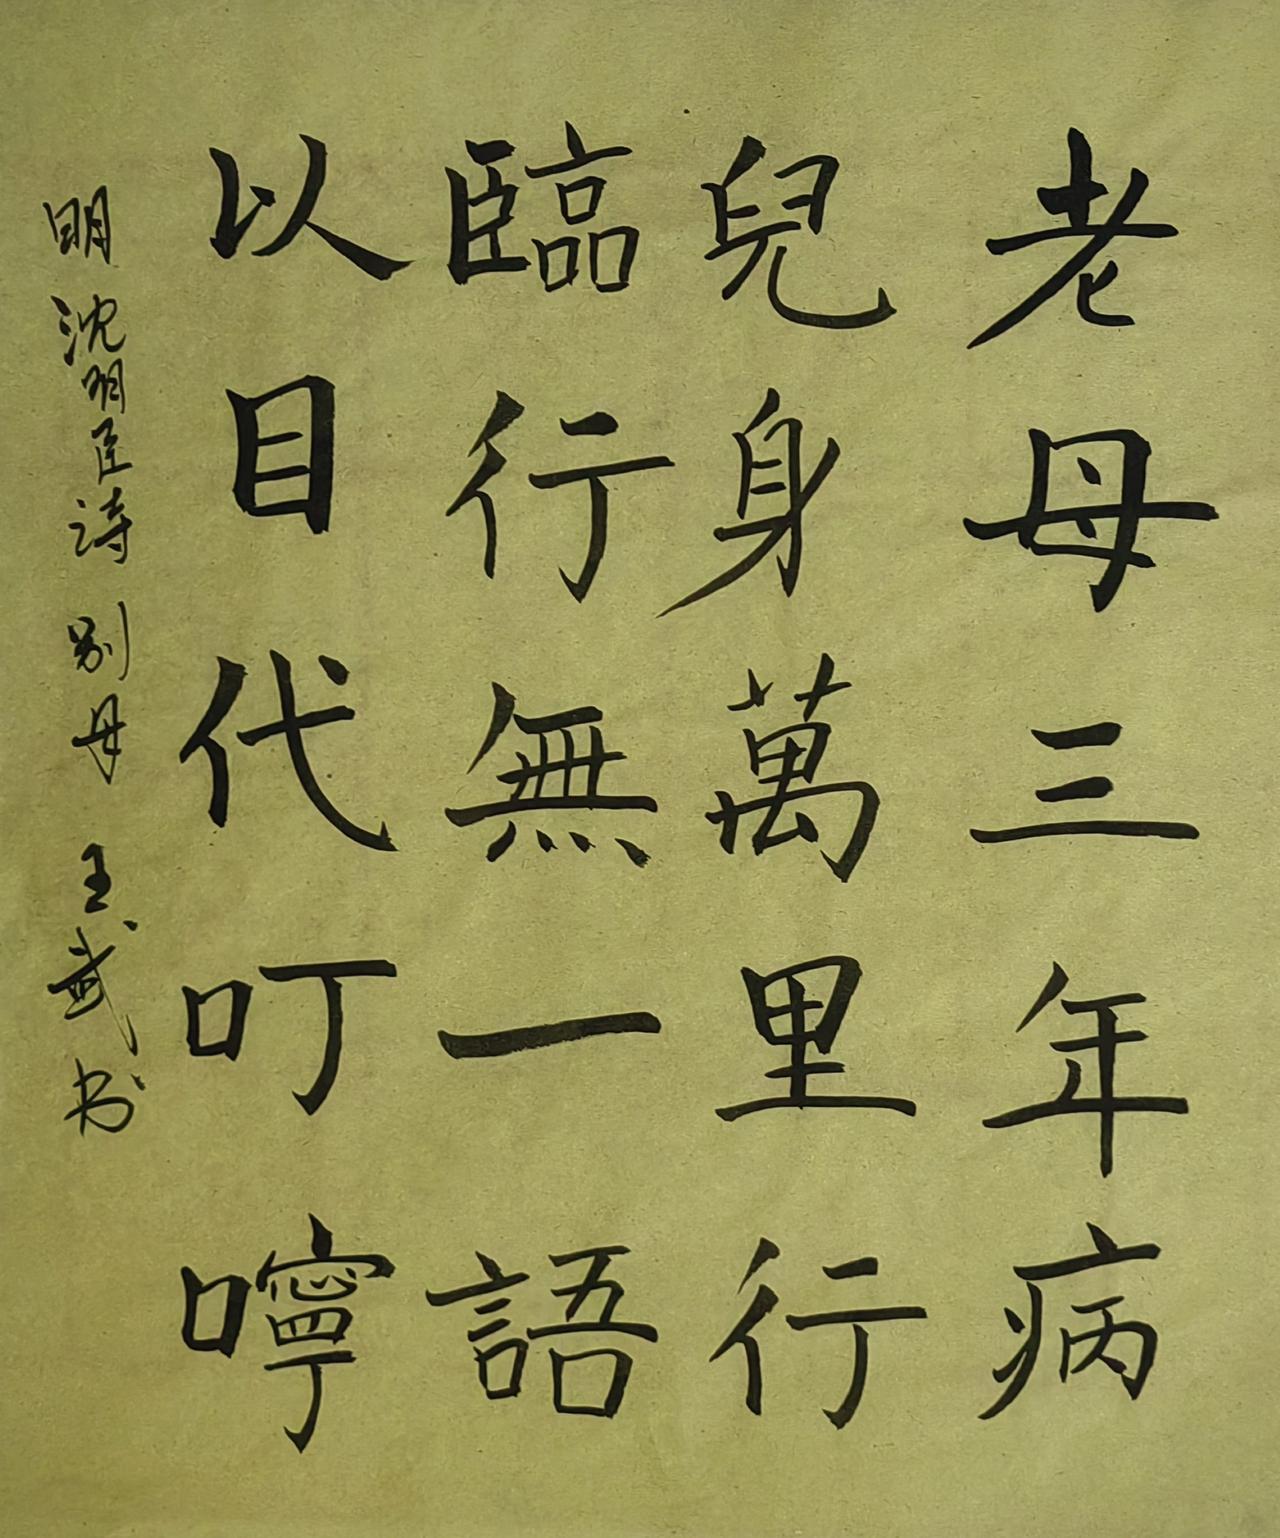 老母三年病
兒身萬里行
臨行無一語
以目代叮嚀
明沈明臣詩别母王武书